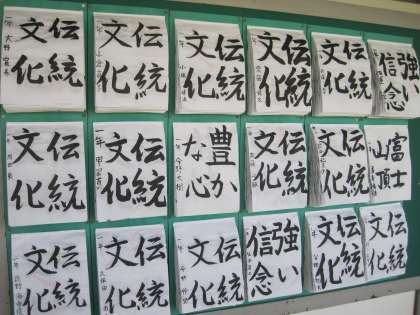 伝統
文化
伝統
文化
伝統
文化
伝統
文化
伝統
文化
強い
信念
伝統
文化
伝統
文化
豊か
な心
伝統
文化
伝統
文化
富士
山頂
伝統
文化
伝統
文化
伝統
文化
強い
信念
伝統
文化
伝統
文化